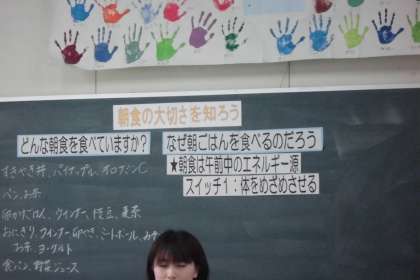 朝食の大切さを知ろう
どんな朝食を食べていますか？
なぜ朝ごはんを食べるのだろう
すきやき丼、パイナップル、オロナミンC
★朝食は午前中のエネルギー源
パン、お茶
スイッチ1：体をめざめさせる
卵かけごはん、ウインナー、枝豆、麦茶
おにぎり、ウインナー、卵やき、ミートボール、みそ
お茶、ヨーグルト
食パン、野菜ジュース